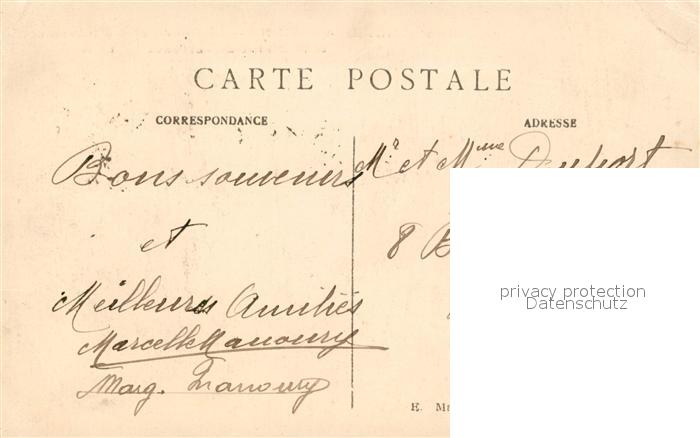 CARTE POSTALE
CORRESPONDANCE
ADRESSE
Bons souvenirs
et
Meilleures Amitiés
Marcelle Manoury
Marg. Manoury
Mr et Mme
8 B
privacy protection
Datenschutz
E.